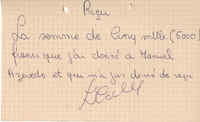 Reçu
La somme de Cinq mille (5000)
francs que j'ai donné à Manuel
Azevedo et qui m'a